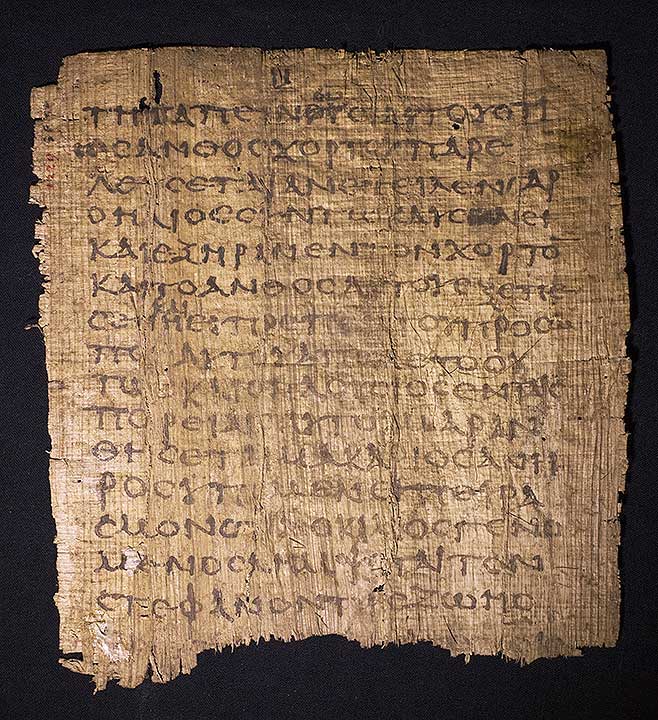 ΤΗ ΤΑΠΕΙΝΩϹΕΙ ΑΥΤΟΥ ΟΤΙ
ΩϹ ΑΝΘΟϹ ΧΟΡΤΟΥ ΠΑΡΕ
ΛΕΥϹΕΤΑΙ ΑΝΕΤΕΙΛΕΝ ΓΑΡ
Ο ΗΛΙΟϹ ϹΥΝ ΤΩ ΚΑΥϹΩΝΕΙ
ΚΑΙ ΕΞΗΡΑΝΕΝ ΤΟΝ ΧΟΡΤΟ
ΚΑΙ ΤΟ ΑΝΘΟϹ ΑΥΤΟΥ ΕΞΕΠΕ
ΠΡΟϹΩ
ΠΟΥ ΑΥΤΟΥ ΑΠΩΛΕΤΟ ΟΥ
ΤΩϹ ΚΑΙ Ο ΠΛΟΥϹΙΟϹ ΕΝ ΤΑΙϹ
ΠΟΡΕΙΑΙϹ ΑΥΤΟΥ ΜΑΡΑΝ
ΘΗϹΕΤΑΙ ΜΑΚΑΡΙΟϹ ΑΝΗ
Ρ ΟϹ ΥΠΟΜΕΝΕΙ ΠΕΙΡΑ
ϹΜΟΝ ΟΤΙ ΔΟΚΙΜΟϹ ΓΕΝΟ
ΜΕΝΟϹ ΛΗΜΨΕΤΑΙ ΤΟΝ
ϹΤΕΦΑΝΟΝ ΤΗϹ ΖΩΗϹ Ο